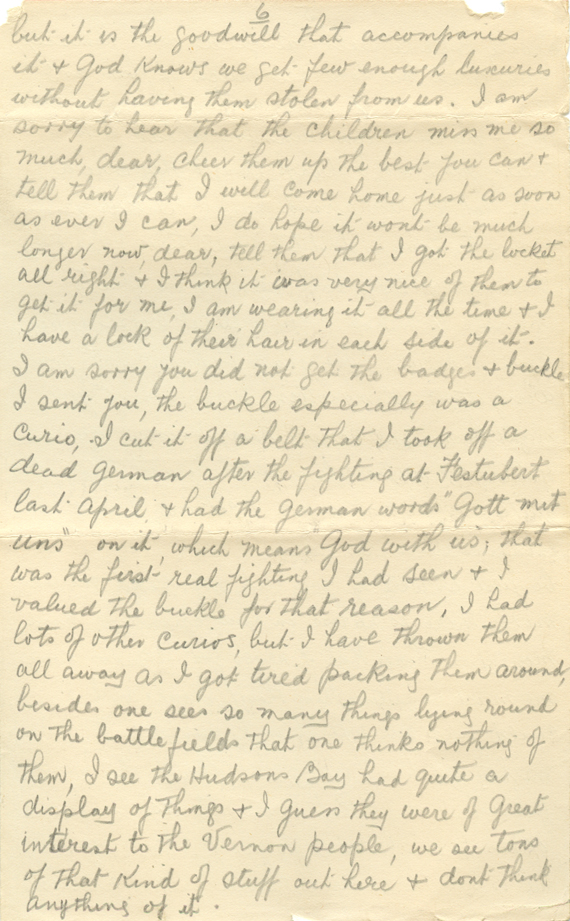 6
but it is the goodwill that accompanies
it & God Knows we get few enough luxuries
without having them stolen from us. I am
sorry to hear that the children miss me so
much, dear, cheer them up the best you can &
tell them that I will come home just as soon
as ever I can, I do hope it wont be much
longer now, dear, tell them that I got the locket
all right & I think it was very nice of them to
get it for me, I am wearing it all the time & I
have a lock of their hair in each side of it.
I am sorry you did not get the badges & buckle
I sent you, the buckle especially was a
curio, I cut it off a belt that I took off a
dead german after the fighting at Festubert
last April & had the german words "Gott mit
uns" on it, which means God with us; that
was the first real fighting I had seen & I
valued the buckle for that reason, I had
lots of other curios, but I have thrown them
all away as I got tired packing them around,
besides one sees so many things lying round
on the battlefields that one thinks nothing of
them, I see the Hudsons Bay had quite a
display of things & I guess they were of great
interest to the Vernon people, we see tons
of that kind of stuff out here & dont think
anything of it.